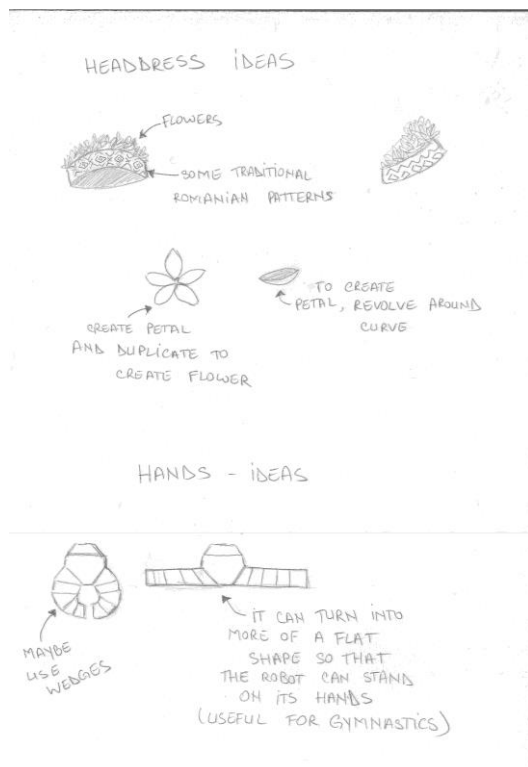 HEADDRESS IDEAS
FLOWERS
SOME TRADITIONAL
ROMANIAN PATTERNS
CREATE PETAL
AND DUPLICATE TO
CREATE FLOWER
TO CREATE
PETAL, REVOLVE AROUND
CURVE
HANDS - IDEAS
MAYBE
USE
WEDGES
IT CAN TURN INTO
MORE OF A FLAT
SHAPE SO THAT
THE ROBOT CAN STAND
ON ITS HANDS
(USEFUL FOR GYMNASTICS)